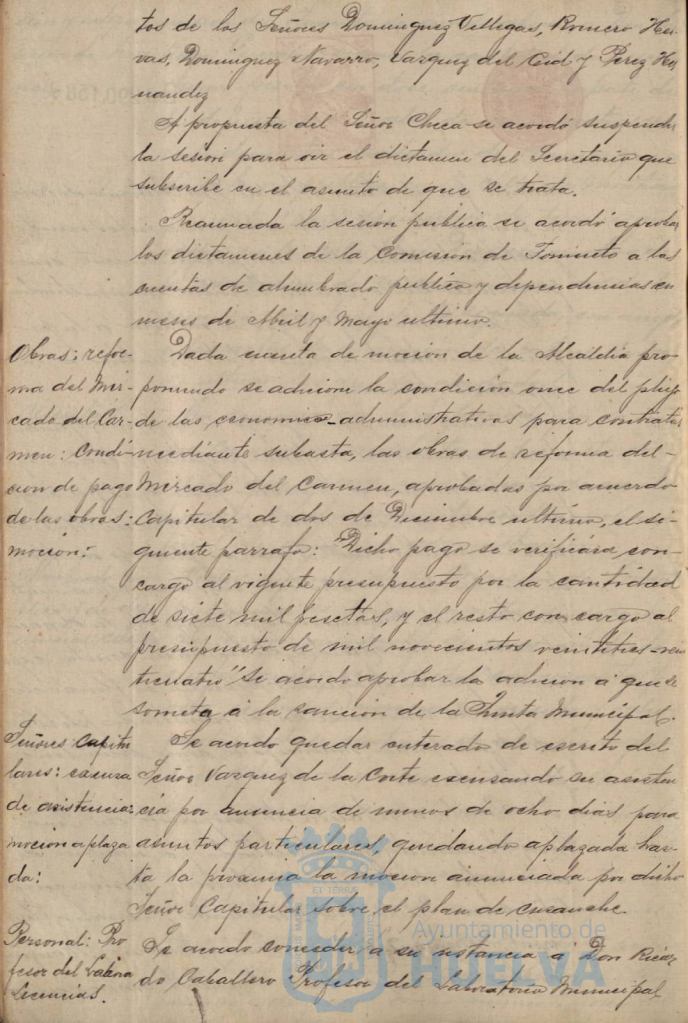 tos de los Señores Dominguez Villegas, Romero Her-
vas, Dominguez Navarro, Vazquez del Cid y Perez Her-
nandez
A propuesta del Señor Checa se acordó suspender
la sesion para oir el dictamen del Secretario que
subscribe en el asunto de que se trata.
Reanudada la sesión publica se acordó aprobar
los dictamenes de la Comisión de Fomento a las
cuentas de alumbrado publico y dependencias en
meses de Abril y Mayo ultimo.
Obras: refor-
ma del Mer-
cado del Car-
men: Condi-
cion de pago
de las obras:
moción:
Dada cuenta de moción de la Alcaldia pro-
poniendo se adicione la condición once del pliego
de las economico-administrativas para contratar
mediante subasta, las obras de reforma del-
Mercado del Carmen, aprobadas por acuerdo
Capitular de dos de Diciembre ultimo, el si-
guiente parrafo: "Dicho pago se verificára con-
cargo al vigente presupuesto por la cantidad
de siete mil pesetas, y el resto con cargo al
presupuesto de mil novecientos veintitres-vein
ticuatro" Se acordo aprobar la adicion á que se
someta á la sancion de la Junta Municipal.
Señores Capitu
lares: excusa
de asistencia:
mocion aplaza
da:
Se acordo quedar enterado de escrito del
Señor Vazquez de la Corte excusando su asisten
cia por ausencia de menos de ocho dias para
asuntos particulares, quedando aplazada has-
ta la proxima la mocion anunciada por dicho
Señor Capitular sobre el plan de ensanche.
Personal: Pro
fesor del
Licencias.
Se acordo conceder a su instancia á Don Ricar
do Caballero Profesor del Laboratorio Municipal
Ayuntamiento de
HUELVA